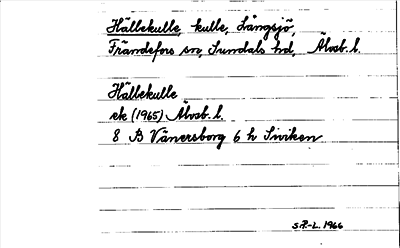 Hällekulle, kulle, Långsjö,
Frändefors sn, Sundals hd, Älvsb. l.
Hällekulle
ek (1965) Älvsb. l.
8 B Vänersborg 6 h Siviken
S.P.-L. 1966